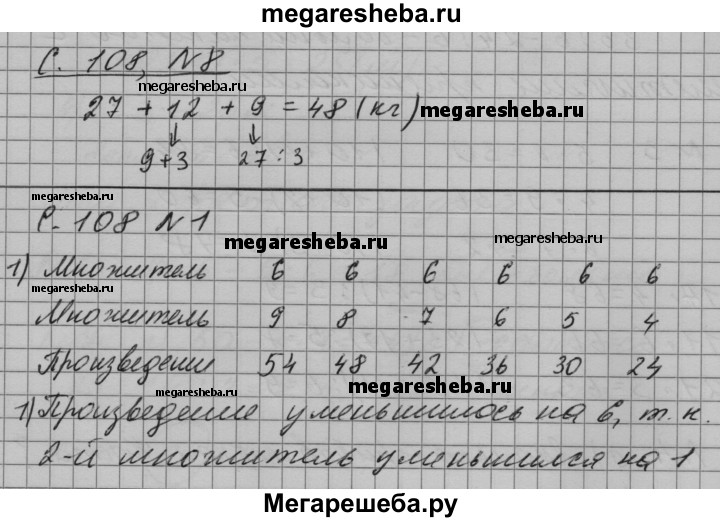 megaresheba.ru
С. 108, №8
megaresheba.ru
27 + 12 + 9 = 48 (кг) megaresheba.ru
9+3 27 : 3
megaresheba.ru
С. 108 №1
megaresheba.ru megaresheba.ru
1) Множитель 6 6 6 6 6 6
megaresheba.ru
Множитель 9 8 7 6 5 4
Произведени 54 48 42 36 30 24
megaresheba.ru megaresheba.ru
1) Произведение уменьшилось на 6, т. к.
2-й множитель уменьшился на 1
Мегарешеба.ру